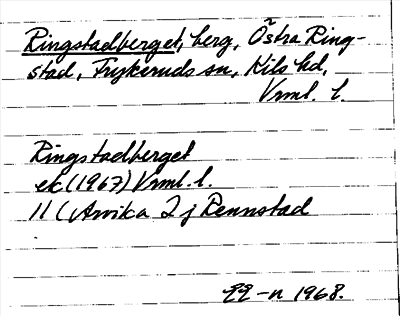 Ringstadberget, berg, Östra Ring-
stad, Frykeruds sn, Kils hd,
Vrml. l.
Ringstadberget
ek (1967) Vrml. l.
11 C Arvika 2 j Rennstad
-n 1968.